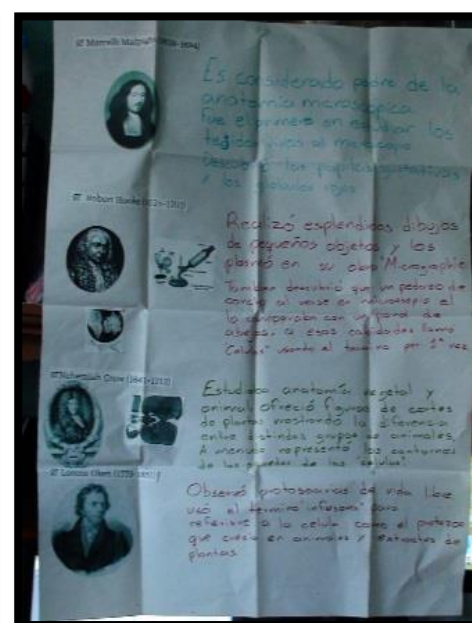 Es considerado padre de la
anatomía microscopica
Fue el primero en estudiar los
tejidos vivos al microscopio
Descubrió las papilas gustativas
y los globulos rojos
Realizó esplendidos dibujos
de pequeños objetos y los
plasmó en su obra "Micrographie
Tambien descubrió que un pedazo de
corcho al verse en microscopio el
lo comparaba con un panal de
abejas, a esas cabidades llamó
"Celulas" usando el termino por 1ª vez
Nehemiah Grew (1641-1712)
Estudiaba anatomía vegetal y
animal ofreció figuras de cortes
de plantas mostrando la diferencia
entre distindos grupos de animales.
A menudo representó los contornos
de las paredes de las celulas"
Lorenz Oken (1779-1851)
Observó protozoarios de vida libre
usó el termino infusoria" para
referirse a la celula como el protozoo
que crecia en animales y extractos de
plantas